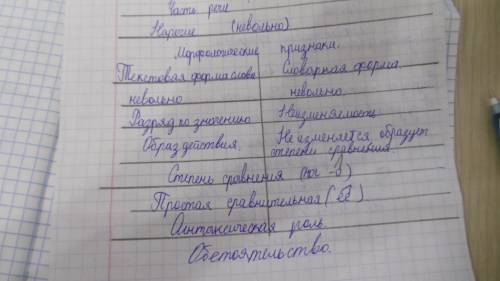 Часть речи
Наречие (невольно)
Морфологические признаки.
Текстовая форма слова Словарная форма.
невольно невольно.
Разряд по значению Неизменяемость
Образ действия. Не изменяется образует
степени сравнения
Степень сравнения
Простая сравнительная
Синтаксическая роль.
Обстоятельство.